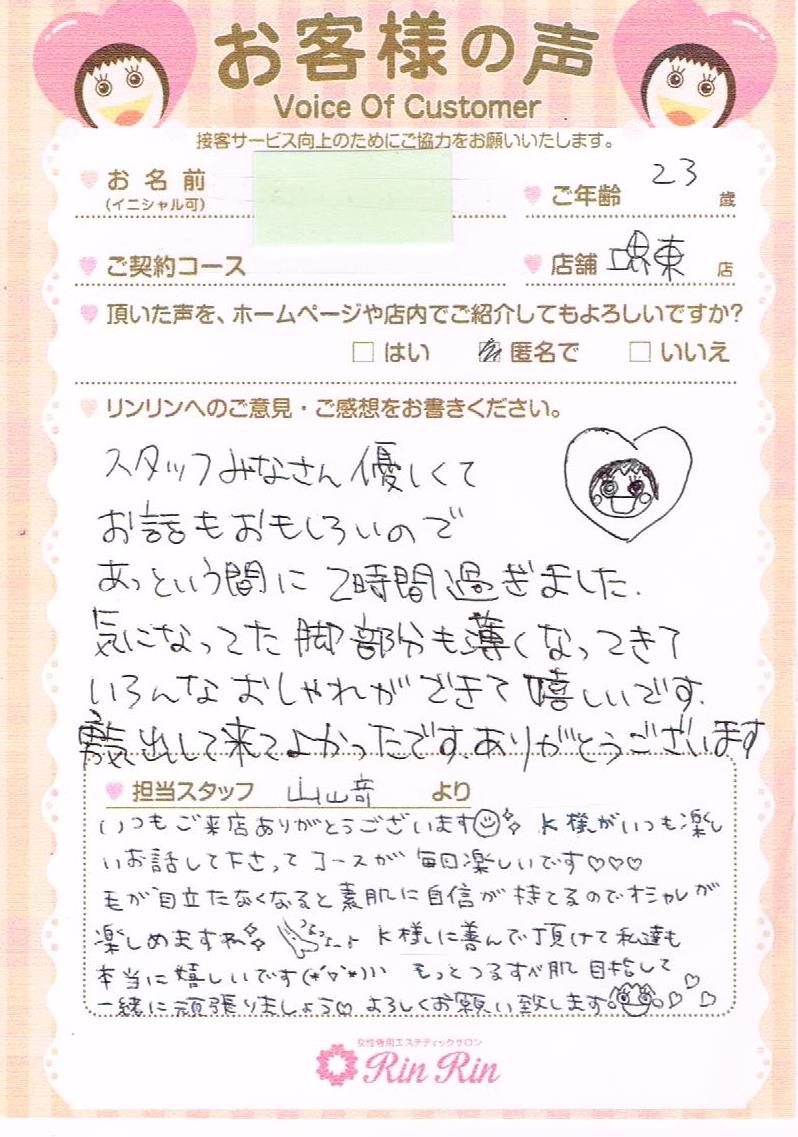 お客様の声
Voice Of Customer
接客サービス向上のためにご協力をお願いいたします。
お名前
(イニシャル可)
ご年齢 23 歳
ご契約コース
店舗 堺東 店
頂いた声を、ホームページや店内でご紹介してもよろしいですか?
はい 匿名で いいえ
リンリンへのご意見・ご感想をお書きください。
スタッフみなさん優しくて
お話もおもしろいので
あっという間に2時間過ぎました.
気になってた脚部分も薄くなってきて
いろんなおしゃれができて嬉しいです.
勇気出して来てよかったです.ありがとうございます
担当スタッフ 山﨑 より
いつもご来店ありがとうございます K様がいつも楽し
いお話して下さってコースが毎回楽しいです♡♡♡
毛が目立たなくなると素肌に自信が持てるのでオシャレが
楽しめますね K様に喜んで頂けて私達も
本当に嬉しいです(*´▽`*))) もっとつるすべ肌目指して
一緒に頑張りましょう♡ よろしくお願い致します
女性専用エステティックサロン
Rin Rin